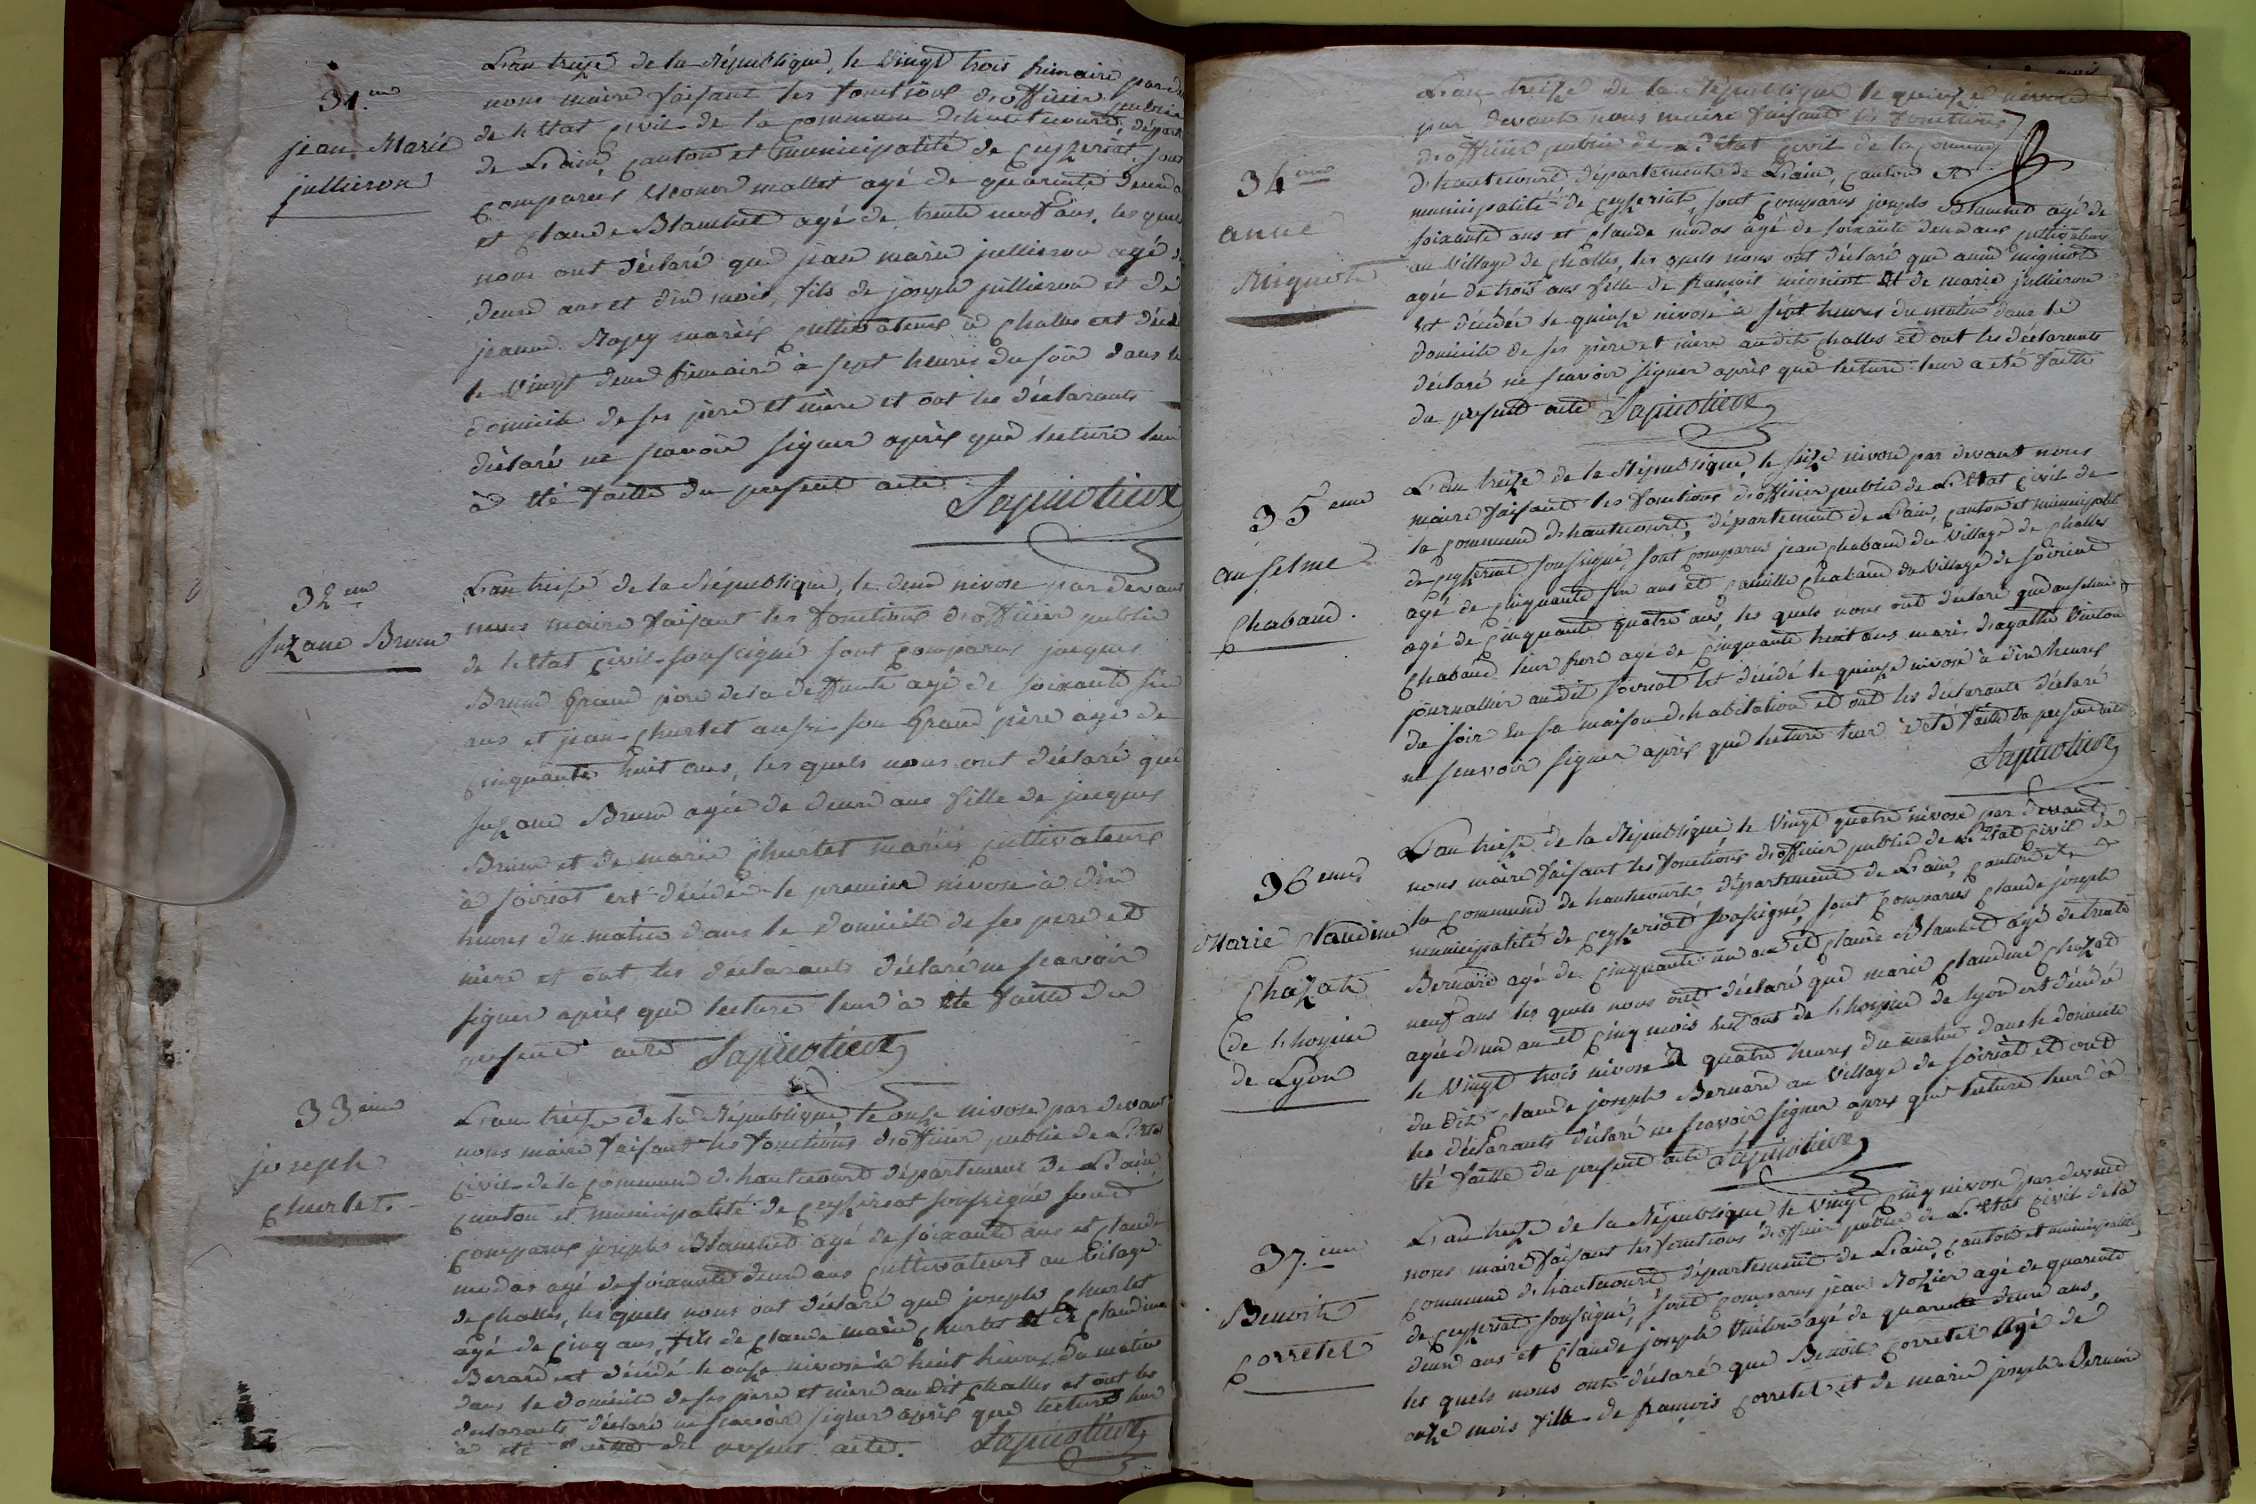 31.me
jean Marie
jullieron
L'an treize de la République, le vingt trois frimaire par de
nous maire faisant les fonctions d'officier public
de l'Etat civil de la commune d'hautecourt, départ
de L'ain, canton et municipalité de ceyzeriat, sont
comparus mallet agé de quarante deux a
et claude Blanchet agé de trente neuf ans, les quels
nous ont déclaré que jean marie jullieron agé de
deux ans et dix mois, fils de joseph jullieron et de
jeanne mariés cultivateurs à challes est décéd
le vingt deux frimaire à sept heures du soir dans le
domicile de ses père et mère et ont les déclarants
déclaré ne scavoir signer après que lecture leur
à été faitte du present acte
32.eme
Suzane Brun
L'an treize de la République, le deux nivose par devant
nous maire faisant les fonctions d'officier public
de l'Etat civil soussigné sont comparus jacques
Brun Grand père de la deffunte agé de soixante six
ans et jean churlet aussi son Grand père agé de
cinquante huit ans, les quels nous ont déclaré que
suzane Brun agée de deux ans fille de jacques
Brun et de marie churlet mariés cultivateurs
à soiriat est décédée le premier nivose à dix
heures du matin dans le domicile de ses pere et
mère et ont les declarants déclaré ne scavoir
signer après que lecture leur à été faitte du
present acte
33.eme
joseph
churlet.
L'an treize de la République, le onze nivose par devant
nous maire faisant les fonctions d'officier public de L'Etat
civil de la commune d'hautecourt département de L'ain,
canton et municipalité de ceyzeriat soussigné sont
comparus joseph Blanchet agé de soixante ans et claude
modas agé de soixante deux ans cultivateurs au village
de challes, les quels nous ont déclaré que joseph churlet
agé de cinq ans, fils de claude marie churlet et de claudine
Berard est décédé le onze nivose à huit heures du matin
dans le domicile de ses pere et mère au dit challes et ont les
declarants déclaré ne scavoir signer après que lecture leur
à été faitte du present acte.
34.eme
anne
Mignot
L'an treize de la République le quinze nivose
par devant nous maire faisant les fonctions
d'officier public de L'Etat civil de la commune
d'hautecourt département de L'ain, canton et
municipalité de ceyzeriat, sont comparus joseph Blanchet agé de
soixante ans et claude modas agé de soixante deux ans cultivateurs
au village de challes, les quels nous ont déclaré que anne mignot
agée de trois ans fille de francois mignot et de marie jullieron
est décédée le quinze nivose à sept heures du matin dans le
domicile de ses père et mère au dit challes et ont les déclarants
déclaré ne scavoir signer après que lecture leur a été faitte
du present acte
35.eme
anselme
chabaud.
L'an treize de la République, le seize nivose par devant nous
maire faisant les fonctions d'officier public de L'Etat civil de
la commune d'hautecourt, département de L'ain, canton et municipalité
de ceyzeriat soussigné, sont comparus jean chabaud du village de challes
agé de cinquante six ans et camille chabaud du village de soiriat
agé de cinquante quatre ans, les quels nous ont déclaré que anselme
chabaud leur frere agé de cinquante huit ans mari d'agathe
journallier au dit soiriat est décédé le quinze nivose à dix heures
du soir en sa maison d'habitation et ont les declarants déclaré
ne scavoir signer après que lecture leur a été faitte du present acte
36.eme
Marie claudine
chazat
de lhospice
de Lyon
L'an treize de la République, le vingt quatre nivose par devant
nous maire faisant les fonctions d'officier public de L'Etat civil de
la commune de hautecourt département de L'ain, canton et
municipalité de ceyzeriat soussigné, sont comparus claude joseph
Bernard agé de cinquante un ans et claude Blanchet agé de trente
neuf ans les quels nous ont déclaré que marie claudine chazat
agée d'un an et cinq mois de lhospice de lyon est décédé
le vingt trois nivose à quatre heures du matin dans le domicile
du dit claude joseph Bernard au village de soiriat et ont
les déclarants déclaré ne scavoir signer apres que lecture leur à
été faitte du present acte
37.eme
Benoite
corretel
L'an treize de la République le vingt cinq nivose par devant
nous maire faisant les fonctions d'officier public de L'Etat civil de la
commune d'hautecourt département de L'ain, canton et municipalité
de ceyzeriat soussigné, sont comparus jean Rozier agé de quarante
deux ans et claude joseph agé de quarante deux ans,
les quels nous ont déclaré que Benoite corretel agé de
onze mois fille de francois corretel et de marie joseph Bernard